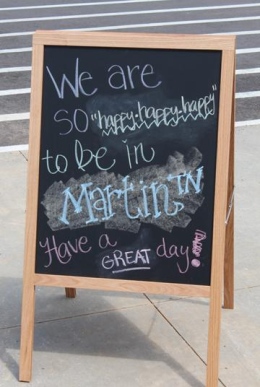 We are
so "happy·happy·happy"
to be in
Martin TN
Have a
GREAT day!